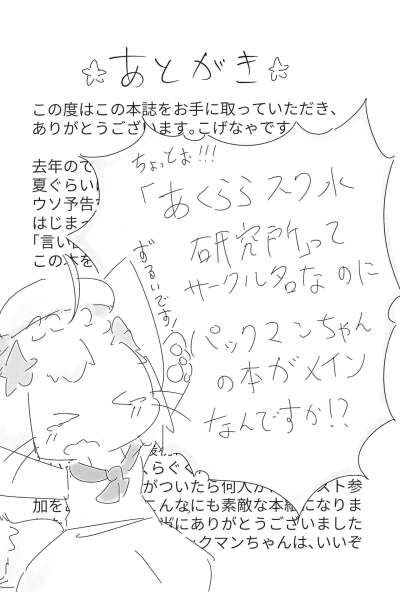 ☆あとがき☆
この度はこの本誌をお手に取っていただき、
ありがとうございます。こげなゃです
去年の
夏ぐらい
ウソ予告
はじまっ
「言い
この本を
ちょっとぉ!!!
「あくららスク水
研究所」って
サークル名なのに
パックマンちゃん
の本がメイン
なんですか!?
ずるいです!
らぐく
がついたら何人か
スト参
加を
こんなにも素敵な本
になりま
にありがとうございました
ックマンちゃんは、いいぞ